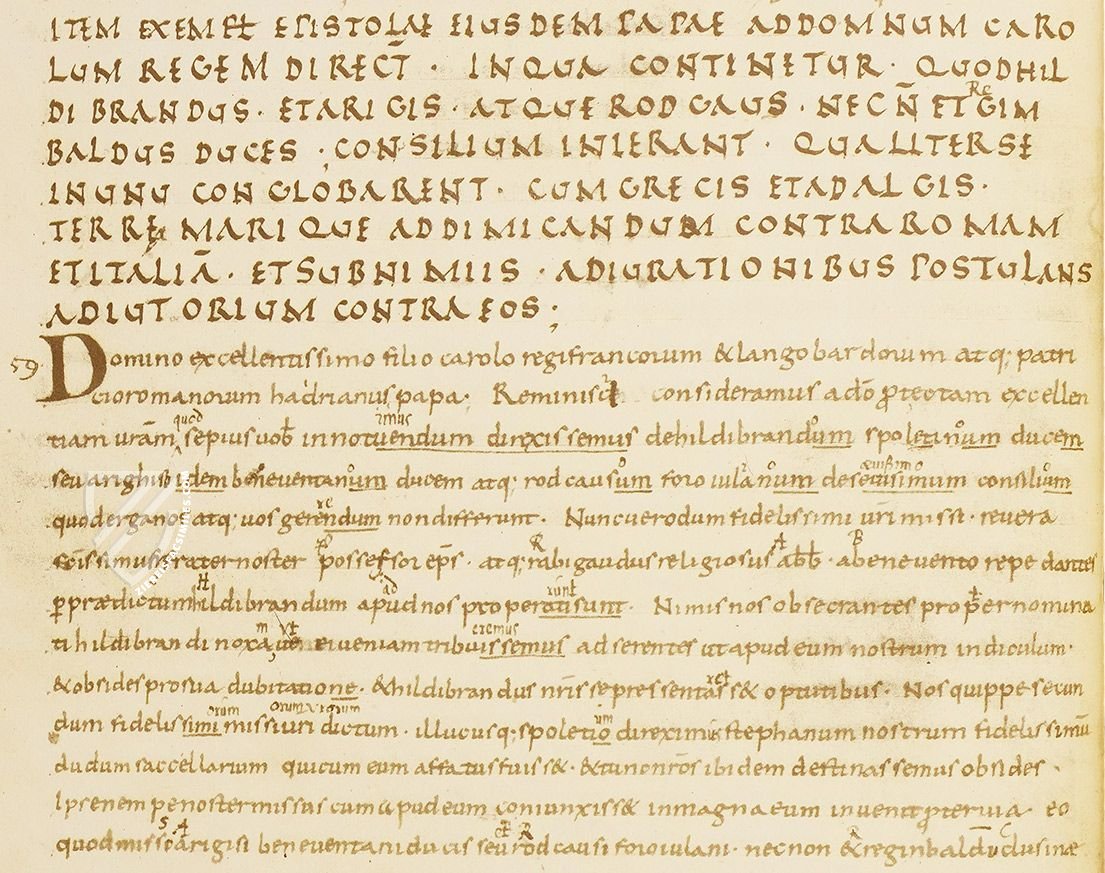 ITEM EXEMPL EPISTOLAE EIUSDEM PAPAE ADDOMNUM CARO
LUM REGEM DIRECT̄ · INQUA CONTINETUR · QUODHIL
DIBRANDUS · ETARIGIS · ATQUE RODGAUS · NECN̄ ET ReGIM
BALDUS DUCES · CONSILIUM INIERANT · QUALITERSE
INUNU CONGLOBARENT · CUMGRECIS ETADALGIS ·
TERRE MARIQUE ADDIMICANDUM CONTRAROMAM
ETITALIĀ · ETSUBNIMIIS · ADIURATIONIBUS POSTULANS
ADIUTORIUM CONTRAEOS ;
59. Domino excellentissimo filio carolo regifrancorum & langobardorum atq; patri
cioromanorum hadrianus papa · Reminisci consideramus adō p̄teotam excellen
tiam urām quod sepius uob̄ innotuendum imus direxissemus dehildibrandum spoletinum ducem
seu arighisi idem beneuentanum ducem atq; rodcausum foroiulanum desecissimum consilium
quod erganos atq; uos gerendum re nondifferunt · Nuncuerodum fidelissimi ūri missi · reuera
sc̄issimus frater noster possessor ep̄s · atq; rabigaudus religiosus abb̄ · abeneuento repedantes
p̄prædictum hildibrandum ad apudnos properatisunt · Nimis nos obsecrantes pro p̄ernomina
ti hildibrandi noxa ueniam tribuissemus eremus adserentes ut apud eum nostrum indiculum ·
& obsides prosua dubitatione · & hildibrandus nr̄is sepresentass& optutibus · Nos quippe secun
dum fidelissimi orum missiuri dictum · illucusq; spoletio um direximus stephanum nostrum fidelissimū
dudum saccellarium qui cum eum affatus fuiss& · & tunc nr̄os ibidem destinassemus obsides ·
Ipse nempe noster missus cum apud eum coniunxiss& inmagna eum inuenit p̄teruia · eo
quod missi arigisi beneuentani ducis seu rodcausi foroiulani · necnon & reginbald ducis clusinæ